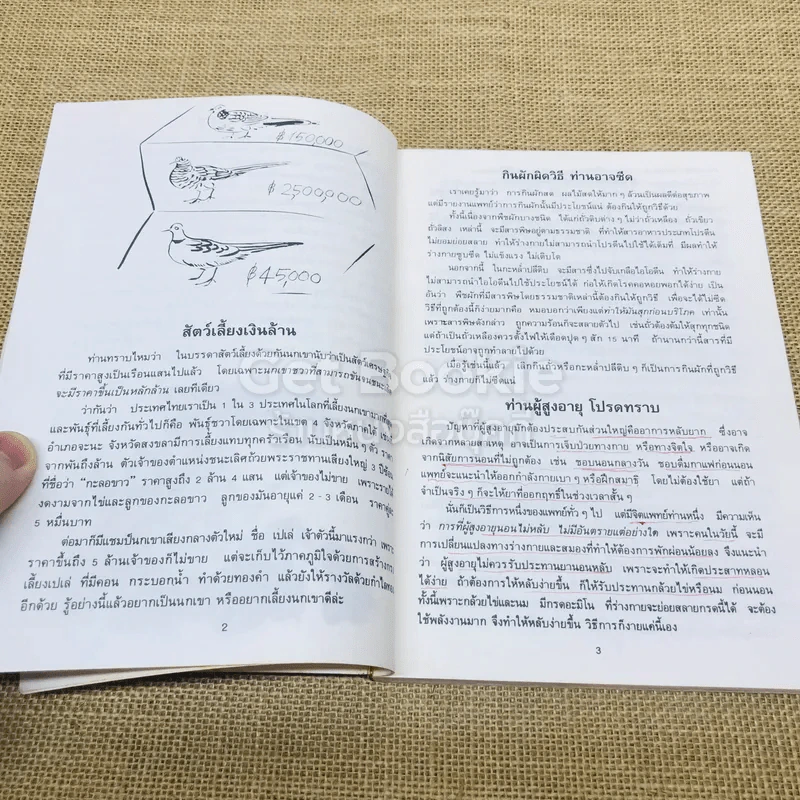 ฿150,000
฿2,500,000
฿45,000
สัตว์เลี้ยงเงินล้าน
ท่านทราบไหมว่า ในบรรดาสัตว์เลี้ยงด้วยกันนกเขานับว่าเป็นสัตว์เศรษฐกิจ
ที่มีราคาสูงเป็นเรือนแสนไปแล้ว โดยเฉพาะนกเขาชวาที่สามารถขันจนชนะใน
จะมีราคาขึ้นเป็นหลักล้าน เลยทีเดียว
ว่ากันว่า ประเทศไทยเราเป็น 1 ใน 3 ประเทศในโลกที่เลี้ยงนกเขามากที่สุด
และพันธุ์ที่เลี้ยงกันทั่วไปก็คือ พันธุ์ชวาโดยเฉพาะในเขต 4 จังหวัดภาคใต้ เช่น
อำเภอจะนะ จังหวัดสงขลามีการเลี้ยงแทบทุกครัวเรือน นับเป็นหมื่น ๆ ตัว
จากพันถึงล้าน ตัวเจ้าของตำแหน่งชนะเลิศถ้วยพระราชทานเสียงใหญ่ 3 ปีซ้อน
ที่ชื่อว่า "กะลอขาว" ราคาสูงถึง 2 ล้าน 4 แสน แต่เจ้าของไม่ขาย เพราะรายได้
งดงามจากไข่และลูกของกะลอขาว ลูกของมันอายุแค่ 2 - 3 เดือน ราคาคู่ละ
5 หมื่นบาท
ต่อมาก็มีแชมป์นกเขาเสียงกลางตัวใหม่ ชื่อ เปเล่ เจ้าตัวนี้มาแรงกว่า เพราะ
ราคาขึ้นถึง 5 ล้านเจ้าของก็ไม่ขาย แต่จะเก็บไว้ภาคภูมิใจด้วยการสร้างกรง
เลี้ยงเปเล่ ที่มีคอน กระบอกน้ำ ทำด้วยทองคำ แล้วยังให้รางวัลด้วยกำไลทอง
อีกด้วย รู้อย่างนี้แล้วอยากเป็นนกเขา หรืออยากเลี้ยงนกเขาดีล่ะ
2
กินผักผิดวิธี ท่านอาจซีด
เราเคยรู้มาว่า การกินผักสด ผลไม้สดให้มาก ๆ ล้วนเป็นผลดีต่อสุขภาพ
แต่มีรายงานแพทย์ว่าการกินผักนั้นมีประโยชน์แน่ ต้องกินให้ถูกวิธีด้วย
ทั้งนี้เนื่องจากพืชผักบางชนิด ได้แก่ถั่วดิบต่าง ๆ ไม่ว่าถั่วเหลือง ถั่วเขียว
ถั่วลิสง เหล่านี้ จะมีสารพิษอยู่ตามธรรมชาติ ที่ทำให้สารอาหารประเภทโปรตีน
ไม่ยอมย่อยสลาย ทำให้ร่างกายไม่สามารถนำโปรตีนไปใช้ได้เต็มที่ มีผลทำให้
ร่างกายซูบซีด ไม่แข็งแรง ไม่เติบโต
นอกจากนี้ ในกะหล่ำปลีดิบ จะมีสารซึ่งไปจับเกลือไอโอดีน ทำให้ร่างกาย
ไม่สามารถนำไอโอดีนไปใช้ประโยชน์ได้ ก่อให้เกิดโรคคอหอยพอกได้ง่าย เป็น
อันว่า พืชผักที่มีสารพิษโดยธรรมชาติเหล่านี้ต้องกินให้ถูกวิธี เพื่อจะได้ไม่ซีด
วิธีที่ถูกต้องนี้ก็ง่ายมากคือ หมอบอกว่าเพียงแต่ทำให้มันสุกก่อนบริโภค เท่านั้น
เพราะสารพิษดังกล่าว ถูกความร้อนก็จะสลายตัวไป เช่นถั่วต้องต้มให้สุกทุกชนิด
แต่ถ้าเป็นถั่วเหลืองควรตั้งไฟให้เดือดปุด ๆ สัก 15 นาที ถ้านานกว่านี้สารที่มี
ประโยชน์อาจถูกทำลายไปด้วย
เมื่อรู้เช่นนี้แล้ว เลิกกินถั่วหรือกะหล่ำปลีดิบ ๆ ก็เป็นการกินผักที่ถูกวิธี
แล้ว ร่างกายก็ไม่ซีดแน่
ท่านผู้สูงอายุ โปรดทราบ
ปัญหาที่ผู้สูงอายุมักต้องประสบกันส่วนใหญ่คืออาการหลับยาก ซึ่งอาจ
เกิดจากหลายสาเหตุ อาจเป็นการเจ็บป่วยทางกาย หรือทางจิตใจ หรืออาจเกิด
จากนิสัยการนอนที่ไม่ถูกต้อง เช่น ชอบนอนกลางวัน ชอบดื่มกาแฟก่อนนอน
แพทย์จะแนะนำให้ออกกำลังกายเบา ๆ หรือฝึกสมาธิ โดยไม่ต้องใช้ยา แต่ถ้า
จำเป็นจริง ๆ ก็จะให้ยาที่ออกฤทธิ์ในช่วงเวลาสั้น ๆ
นั่นก็เป็นวิธีการหนึ่งของแพทย์ทั่ว ๆ ไป แต่มีจิตแพทย์ท่านหนึ่ง มีความเห็น
ว่า การที่ผู้สูงอายุนอนไม่หลับ ไม่มีอันตรายแต่อย่างใด เพราะคนในวัยนี้ จะมี
การเปลี่ยนแปลงทางร่างกายและสมองที่ทำให้ต้องการพักผ่อนน้อยลง จึงแนะนำ
ว่า ผู้สูงอายุไม่ควรรับประทานยานอนหลับ เพราะจะทำให้เกิดประสาทหลอน
ได้ง่าย ถ้าต้องการให้หลับง่ายขึ้น ก็ให้รับประทานกล้วยไข่หรือนม ก่อนนอน
ทั้งนี้เพราะกล้วยไข่และนม มีกรดอะมิโน ที่ร่างกายจะย่อยสลายกรดนี้ได้ จะต้อง
ใช้พลังงานมาก จึงทำให้หลับง่ายขึ้น วิธีการก็ง่ายแค่นี้เอง
3
Get Bookie